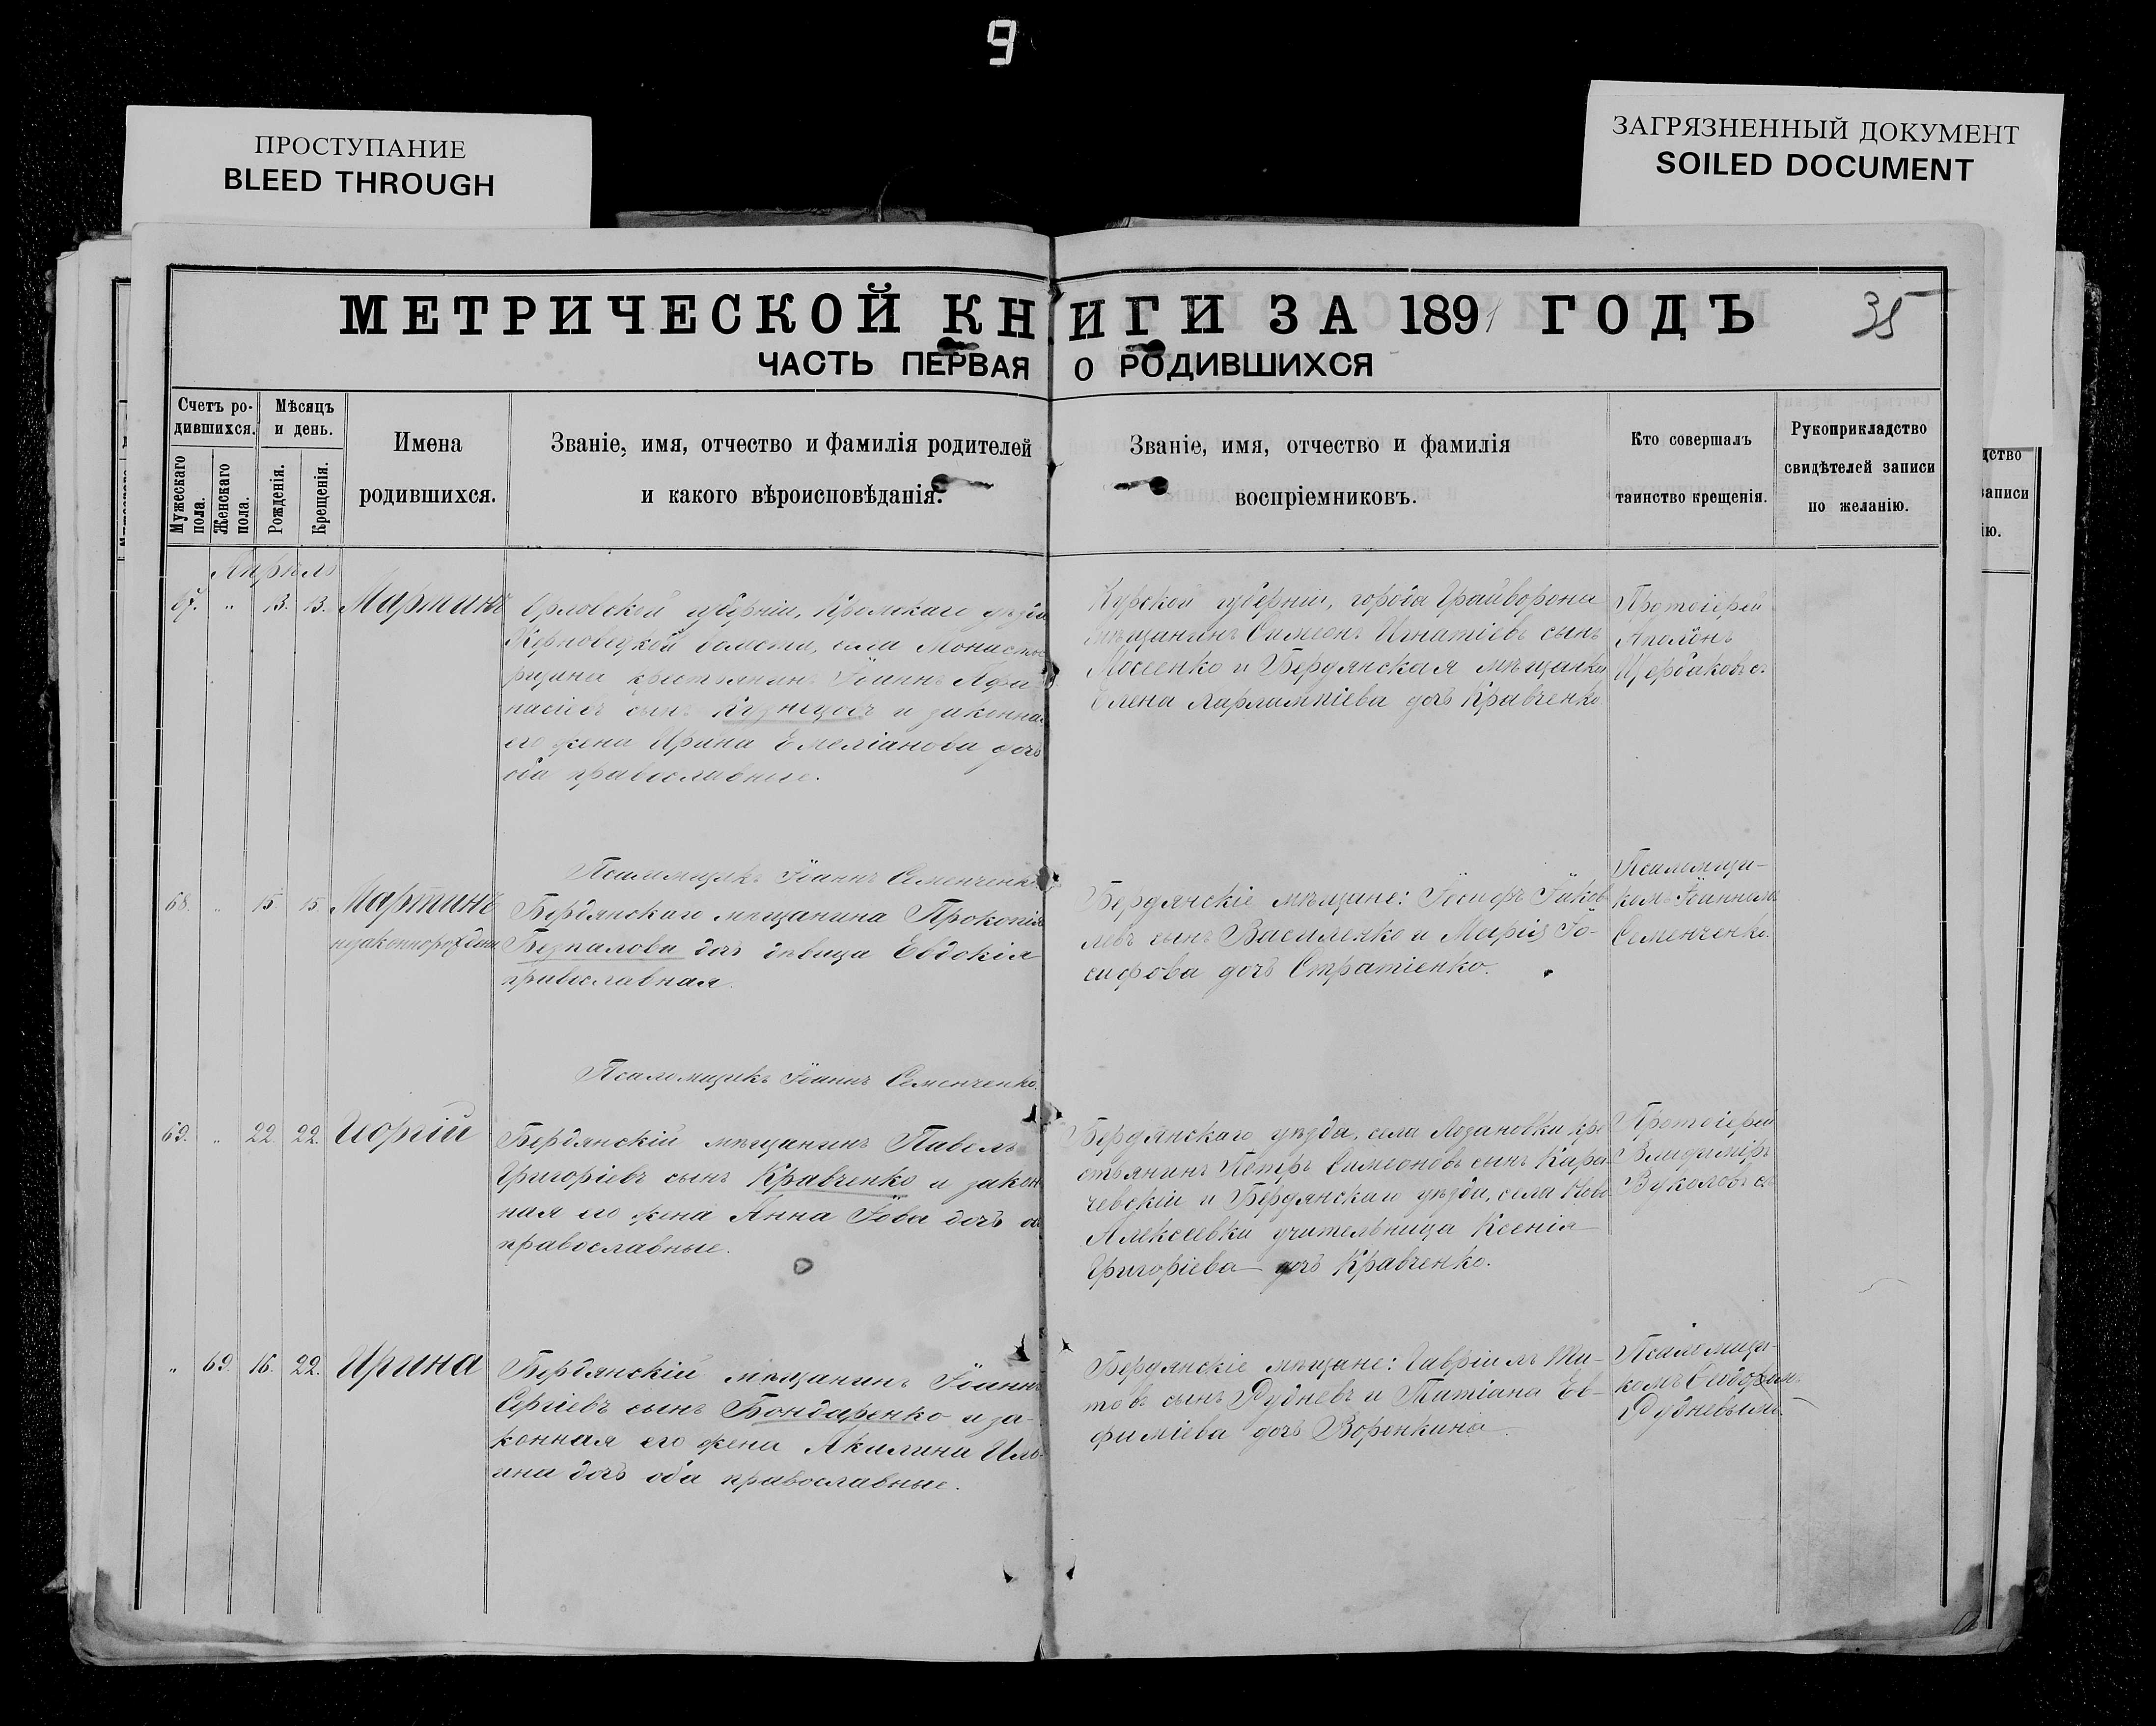 9
ПРОСТУПАНИЕ
BLEED THROUGH
ЗАГРЯЗНЕННЫЙ ДОКУМЕНТ
SOILED DOCUMENT
МЕТРИЧЕСКОЙ КНИГИ ЗА 1891 ГОДЪ
35
ЧАСТЬ ПЕРВАЯ О РОДИВШИХСЯ
Счетъ ро-
дившихся.
Мужескаго
пола.
Женскаго
пола.
Мѣсяцъ
и день.
Рожденія.
Крещенія.
Имена
родившихся.
Званіе, имя, отчество и фамилія родителей
и какого вѣроисповѣданія.
Званіе, имя, отчество и фамилія
воспріемниковъ.
Кто совершалъ
таинство крещенія.
Рукоприкладство
свидѣтелей записи
по желанію.
Апрѣль
67. " 13. 13. Мартинъ
Орловской губерніи, Кромскаго уѣзда
волости, села
крестьянинъ Іоаннъ Афа-
насіевъ сынъ Кузнецовъ и законная
его жена Ирина Емеліанова дочь
оба православные.
Курской губерніи, города Грайворона
мѣщанинъ Симеонъ Игнатіевъ сынъ
Мосеенко и Бердянская мѣщанка
Елена Харлампіева дочь Кравченко
Протоіерей
Аполонъ
Щербаковъ
Псаломщикъ Іоаннъ Семенченко
68. " 15. 15. Мартинъ
незаконнорожден
Бердянскаго мѣщанина Прокопія
Безпалова дочь дѣвица Евдокія
православная.
Бердянскіе мѣщане: Іосифъ Іаков-
левъ сынъ Василенко и Марія Іо-
сифова дочь Стратіенко.
Псаломщи-
комъ Іоанномъ
Семенченко.
Псаломщикъ Іоаннъ Семенченко.
69. " 22. 22. Иоргій
Бердянскій мѣщанинъ Павелъ
Григоріевъ сынъ Кравченко и закон
ная его жена Анна Іова дочь оба
православные.
Бердянскаго уѣзда, села Лозановки кре
стьянинъ Петръ Симеоновъ сынъ Кара
чевскій и Бердянскаго уѣзда, села Ново
Алексеевки учительница Ксенія
Григоріева дочь Кравченко.
Протоіерей
Владиміръ
Вуколовъ
" 69. 16. 22. Ирина
Бердянскій мѣщанинъ Іоаннъ
Сергіевъ сынъ Бондаренко и за-
конная его жена Акилина Иль-
ина дочь оба православные.
Бердянскіе мѣщане: Гавріилъ Ти-
товъ сынъ Рудневъ и Татіана Ев-
фиміева дочь Воронкина
Псаломщи-
комъ
Рудневымъ.